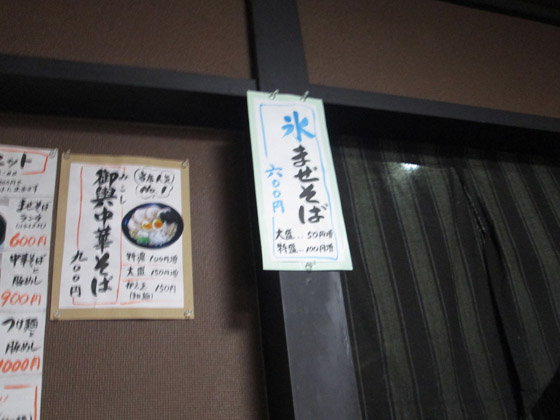 氷まぜそば
六〇〇円
大盛…50円増
特盛…100円増
当店人気
No.1!
みこし
御輿中華そば
九〇〇円
特盛 100円増
大盛 150円増
まぜそば
ランチ
600円
中華そば
と
豚めし
900円
つけ麺
と
豚めし
1000円